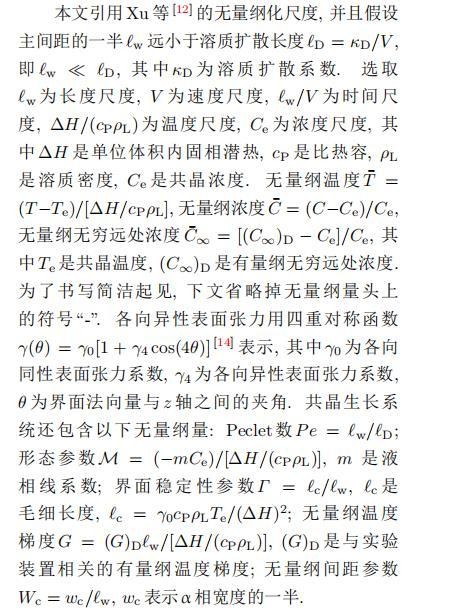 本文引用Xu等[12]的无量纲化尺度, 并且假设
主间距的一半ℓw远小于溶质扩散长度ℓD = κD/V,
即ℓw ≪ ℓD, 其中κD为溶质扩散系数. 选取
ℓw为长度尺度, V为速度尺度, ℓw/V为时间尺
度, ΔH/(cPρL)为温度尺度, Ce为浓度尺度, 其
中ΔH是单位体积内固相潜热, cP是比热容, ρL
是溶质密度, Ce是共晶浓度. 无量纲温度T̄ =
(T−Te)/[ΔH/cPρL], 无量纲浓度C̄ = (C−Ce)/Ce,
无量纲无穷远处浓度C̄∞ = [(C∞)D − Ce]/Ce, 其
中Te是共晶温度, (C∞)D是有量纲无穷远处浓度.
为了书写简洁起见, 下文省略掉无量纲量头上
的符号“-”. 各向异性表面张力用四重对称函数
γ(θ) = γ0[1 + γ4 cos(4θ)][14]表示, 其中γ0为各向
同性表面张力系数, γ4为各向异性表面张力系数,
θ为界面法向量与z轴之间的夹角. 共晶生长系
统还包含以下无量纲量: Peclet数Pe = ℓw/ℓD;
形态参数M = (−mCe)/[ΔH/(cPρL)], m 是液
相线系数; 界面稳定性参数Γ = ℓc/ℓw, ℓc是
毛细长度, ℓc = γ0cPρLTe/(ΔH)²; 无量纲温度
梯度G = (G)Dℓw/[ΔH/(cPρL)], (G)D是与实验
装置相关的有量纲温度梯度; 无量纲间距参数
Wc = wc/ℓw, wc表示α相宽度的一半.